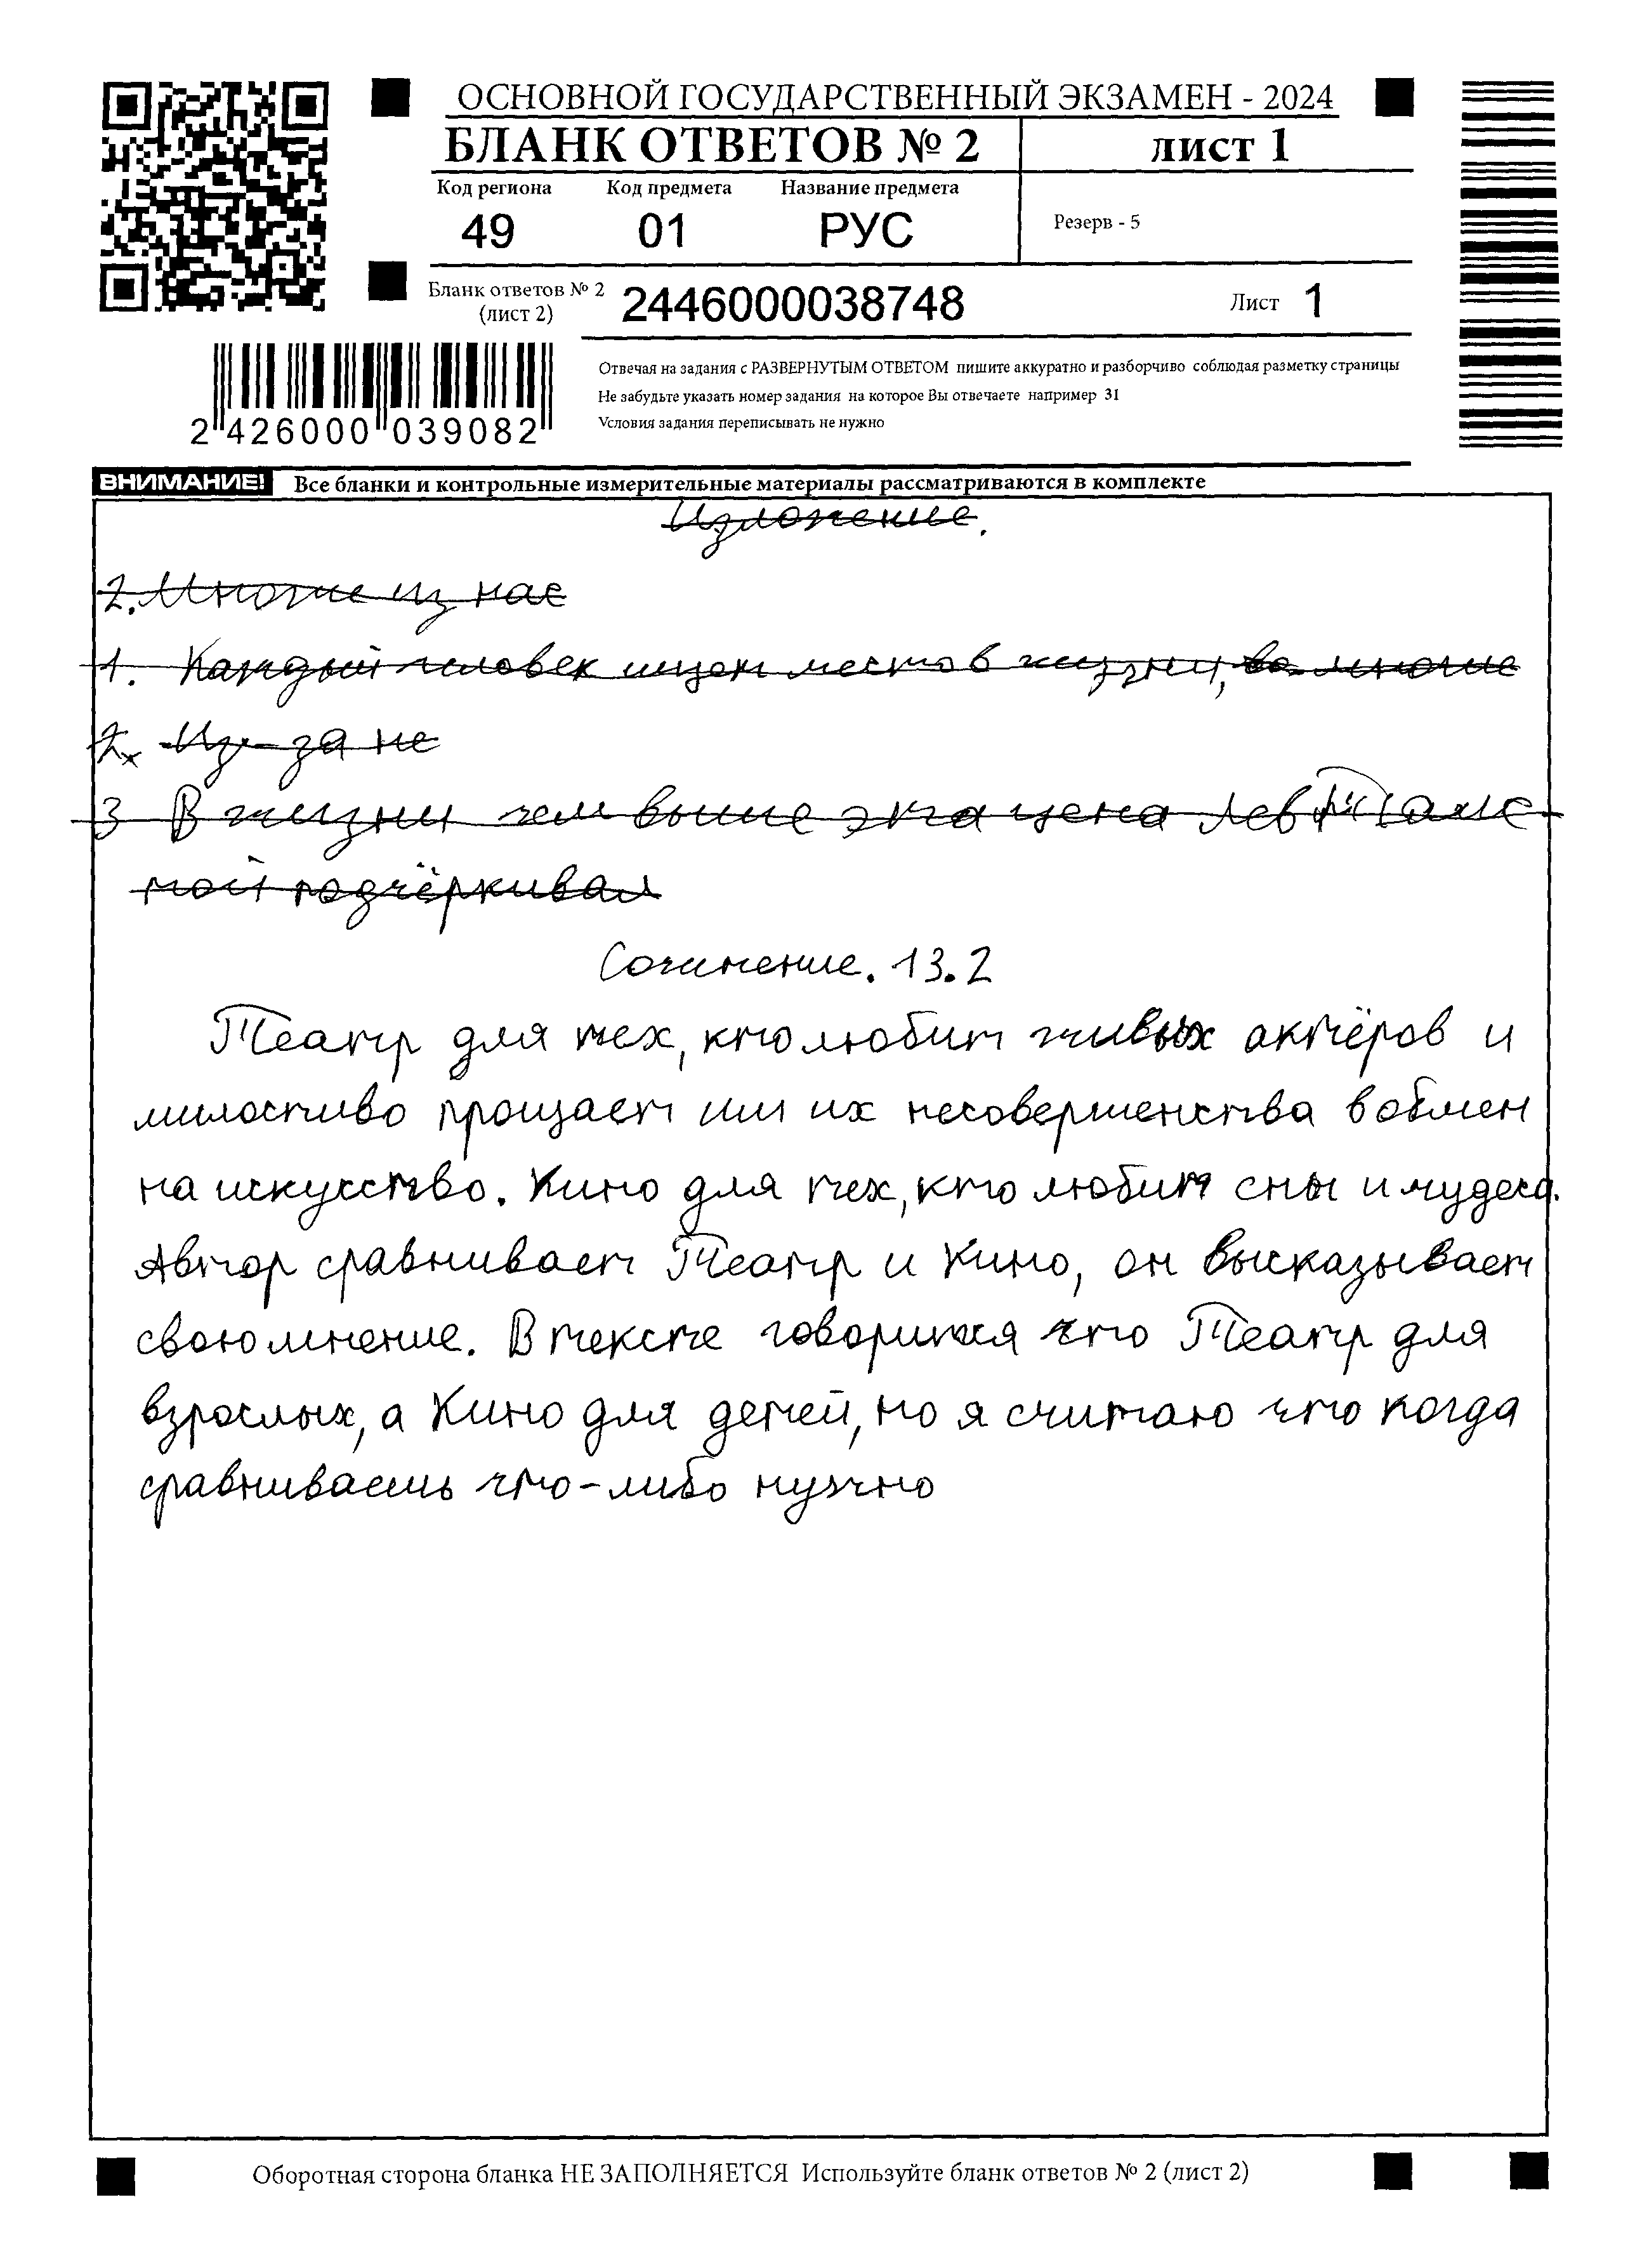 ОСНОВНОЙ ГОСУДАРСТВЕННЫЙ ЭКЗАМЕН - 2024
БЛАНК ОТВЕТОВ № 2
лист 1
Код региона Код предмета Название предмета
49 01 РУС
Резерв - 5
Бланк ответов № 2
(лист 2)
2446000038748
Лист 1
2 426000 039082
Отвечая на задания с РАЗВЕРНУТЫМ ОТВЕТОМ пишите аккуратно и разборчиво соблюдая разметку страницы
Не забудьте указать номер задания на которое Вы отвечаете например 31
Условия задания переписывать не нужно
ВНИМАНИЕ! Все бланки и контрольные измерительные материалы рассматриваются в комплекте
Изложение.
2. Многие из нас
1. Каждый человек ищет место в жизни, во многие
2. Из-за не
3 В жизни чем выше эта цена Лев Толс
той подчёркивал
Сочинение. 13.2
Театр для тех, кто любит живых актёров и
милостиво прощает им их несовершенства в обмен
на искусство. Кино для тех, кто любит сны и чудеса.
Автор сравнивает Театр и Кино, он высказывает
свою мнение. В тексте говорится что Театр для
взрослых, а Кино для детей, но я считаю что когда
сравниваешь что-либо нужно
Оборотная сторона бланка НЕ ЗАПОЛНЯЕТСЯ Используйте бланк ответов № 2 (лист 2)